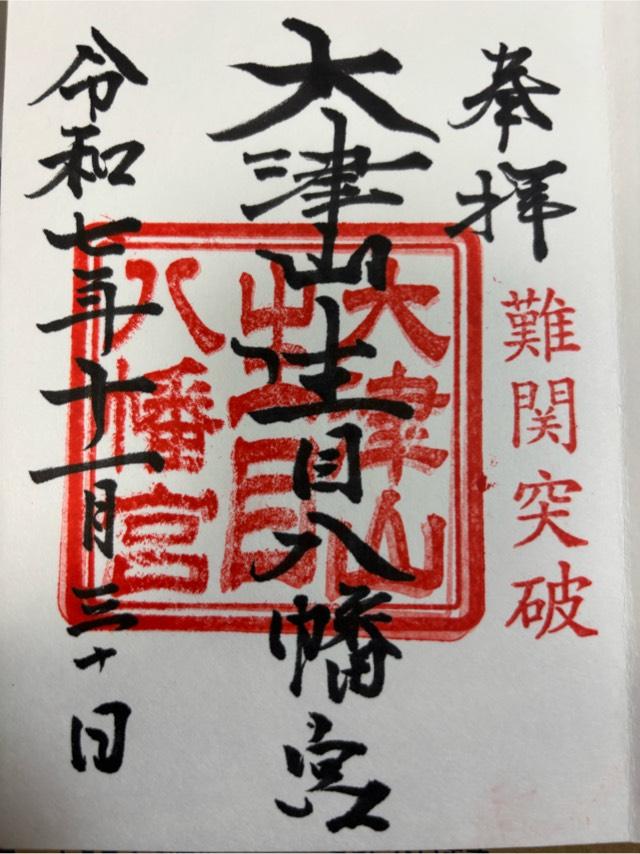 奉拝
難関突破
大津山生目八幡宮
大津山
生目
八幡宮
令和七年十一月三十日